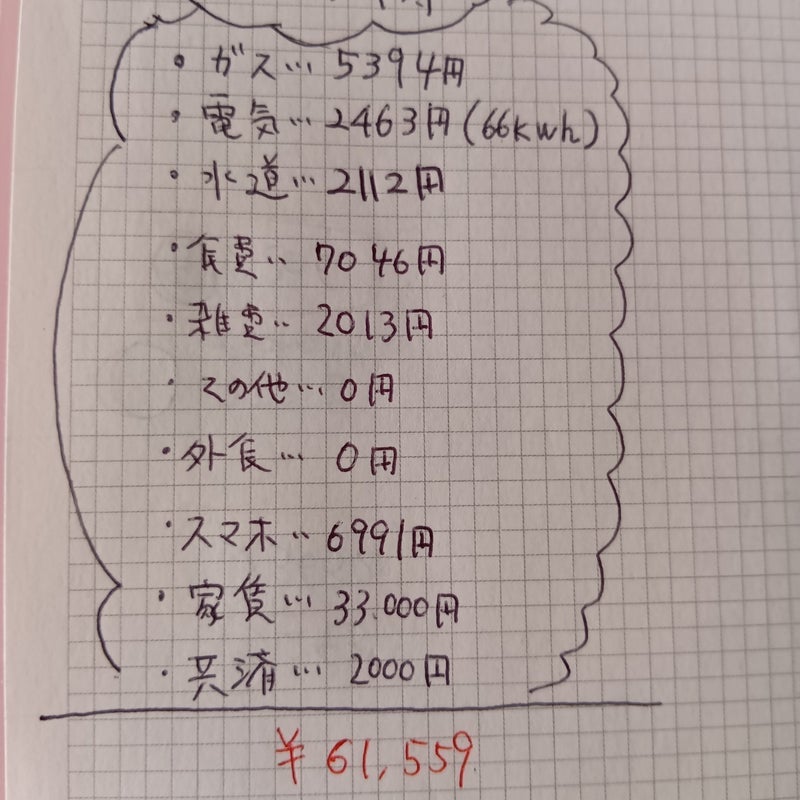 ・ガス…5394円
・電気…2463円(66kwh)
・水道…2112円
・食費‥7046円
・雑費‥2013円
・その他…0円
・外食…0円
・スマホ‥6991円
・家賃…33.000円
・共済…2000円
¥61,559